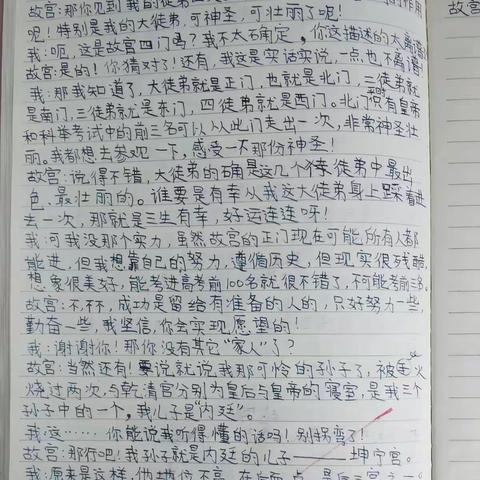 故宫:那你见到我的
的作用
呢!特别是我的大徒弟,可神圣,可壮丽了呢!
我:呃,这是故宫四门吗?我不太石角定,你这描述的太离谱
故宫:是的!你猜对了!还有,我这是实话实说,一点也不离谱!
我:那我知道了,大徒弟就是正门,也就是北门,二徒弟就
是南门,三徒弟就是东门,四徒弟就是西门。北门平时只有皇帝
和科举考试中的前三名可以从此门走出一次,非常神圣壮
丽。我都想去参观一下,感受一下那份神圣!
故宫:说得不错,大徒弟的确是这几个徒弟中最出
色、最壮丽的。谁要是有幸从我这大徒弟身上踩着进
去一次,那就是三生有幸,好运连连呀!
我:可我没那个实力,虽然故宫的正门现在可能所有人都
能进,但我想靠自己的努力,遵循历史,但现实很残酷,
想象很美好,能考进高考前100名就很不错了,不可能考前三名。
故宫:不,不,成功是留给有准备的人的,只好努力一些,
勤奋一些,我坚信,你会实现愿望的!
我:谢谢你!那你没有其它“家人”了?
故宫:当然还有!要说就说我那可怜的孙子了,被火
烧过两次,与乾清宫分别为皇后与皇帝的寝室,是我三个
孙子中的一个,我儿子是“内廷”。
我:这……你能说我听得懂的话吗!别拐弯了!
故宫:那行吧!我孙子就是内廷的儿子——坤宁宫。
我:原来是这样,他地位不高,在后面一点,是后三宫之一
故宫